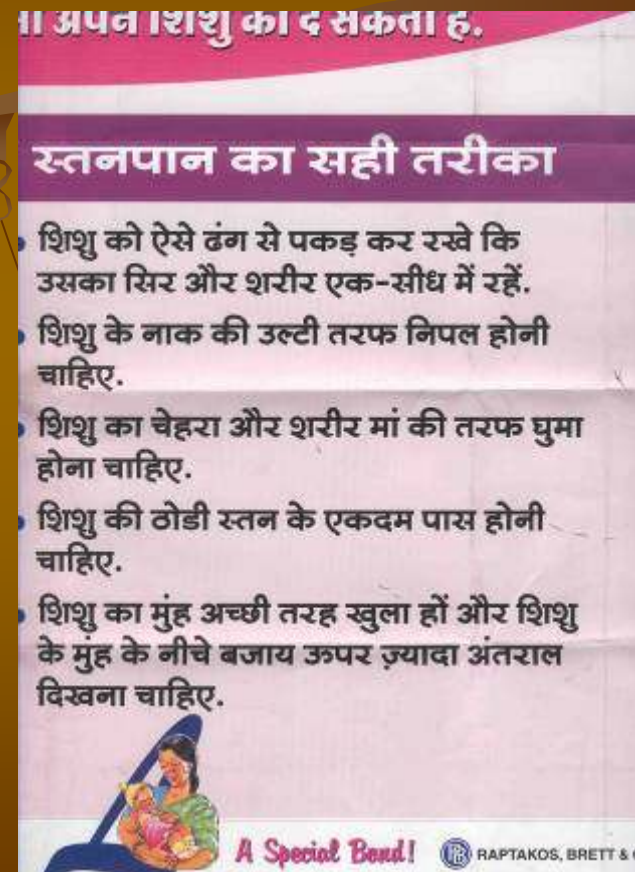 अपने शिशु को दे सकती है.
स्तनपान का सही तरीका
शिशु को ऐसे ढंग से पकड़ कर रखे कि
उसका सिर और शरीर एक-सीध में रहें.
शिशु के नाक की उल्टी तरफ निपल होनी
चाहिए.
शिशु का चेहरा और शरीर मां की तरफ घुमा
होना चाहिए.
शिशु की ठोडी स्तन के एकदम पास होनी
चाहिए.
शिशु का मुंह अच्छी तरह खुला हों और शिशु
के मुंह के नीचे बजाय ऊपर ज़्यादा अंतराल
दिखना चाहिए.
A Special Bond! RAPTAKOS, BRETT &